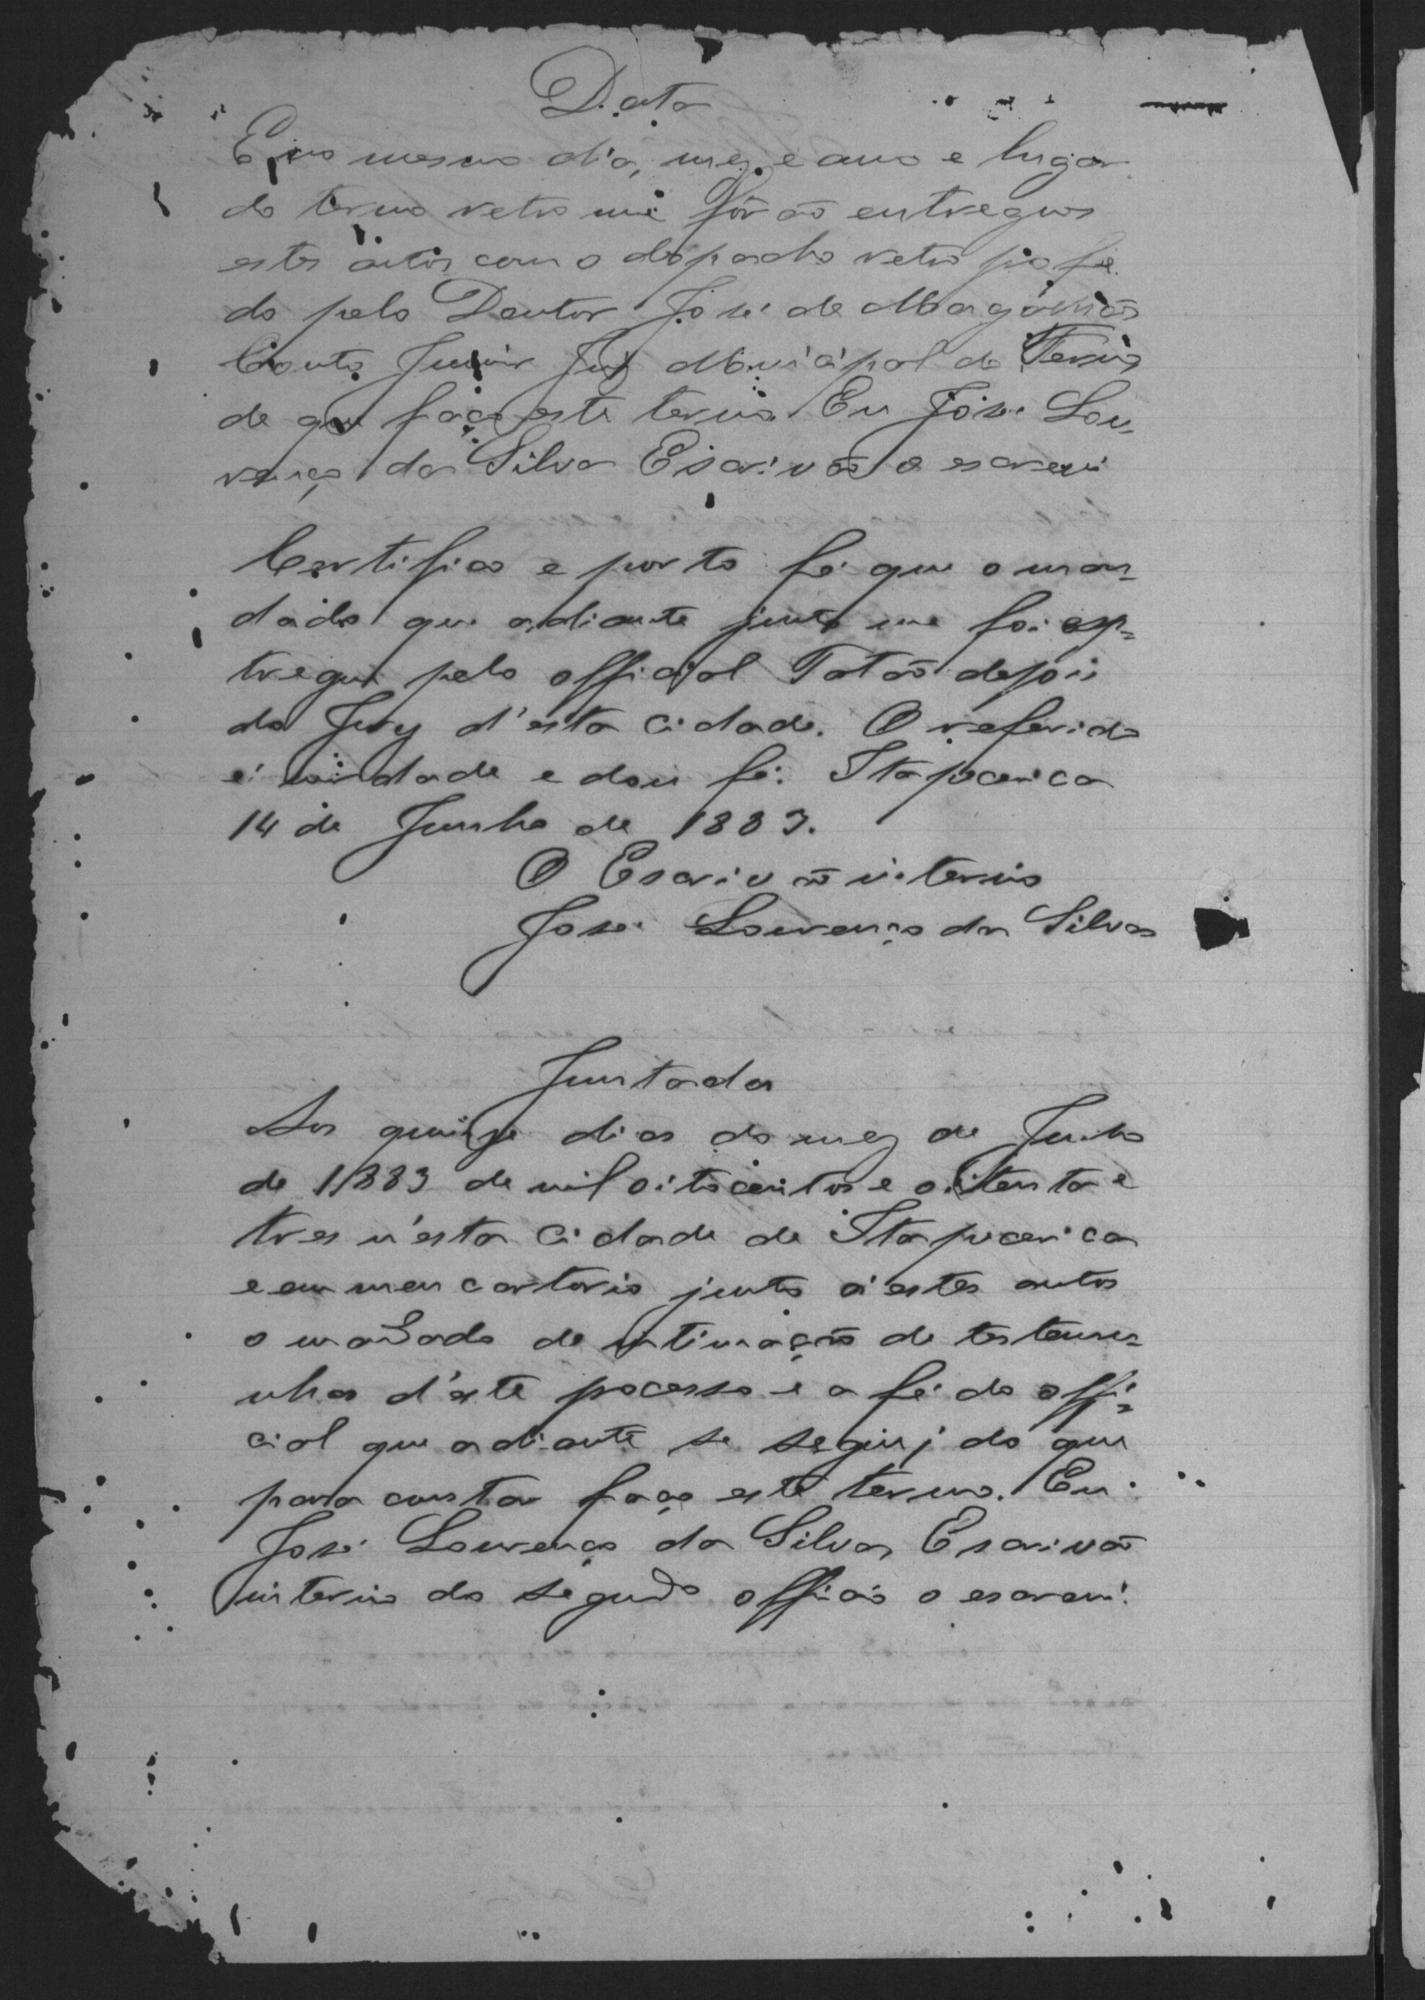 Data
E no mesmo dia, mez e anno e lugar
do termo retro me forão entregues
estes autos com o despacho retro profe
do pelo Doutor José de Magalhães
Couto Junior Juiz Municipal do Termo
de que faço este termo. Eu José Lou-
renço da Silva Escrivão o escrevi
Certifico e porto fé que o man-
dado que adiante junto me foi en-
tregue pelo official Tatão depois
do Jury d'esta cidade. O referido
é verdade e dou fé. Itapecerica
14 de Junho de 1883.
O Escrivão interino
José Lourenço da Silva
Juntada
Aos quinze dias do mez de Junho
de 1883 de mil oitocentos e oitenta e
tres n'esta Cidade de Itapecerica
e em meu cartorio junto á estes autos
o mandado de intimação de testemu-
nhas d'este pocesso e a fé do offi-
cial que adiante se segue; do que
para constar faço este termo. Eu
José Lourenço da Silva Escrivão
interino do segundo officio o escrevi.